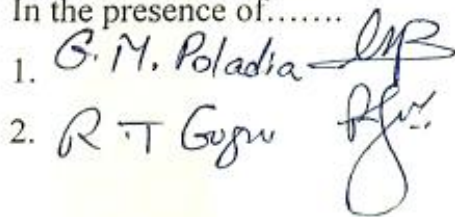 In the presence of.......
1. G. M. Poladia
2. R. T